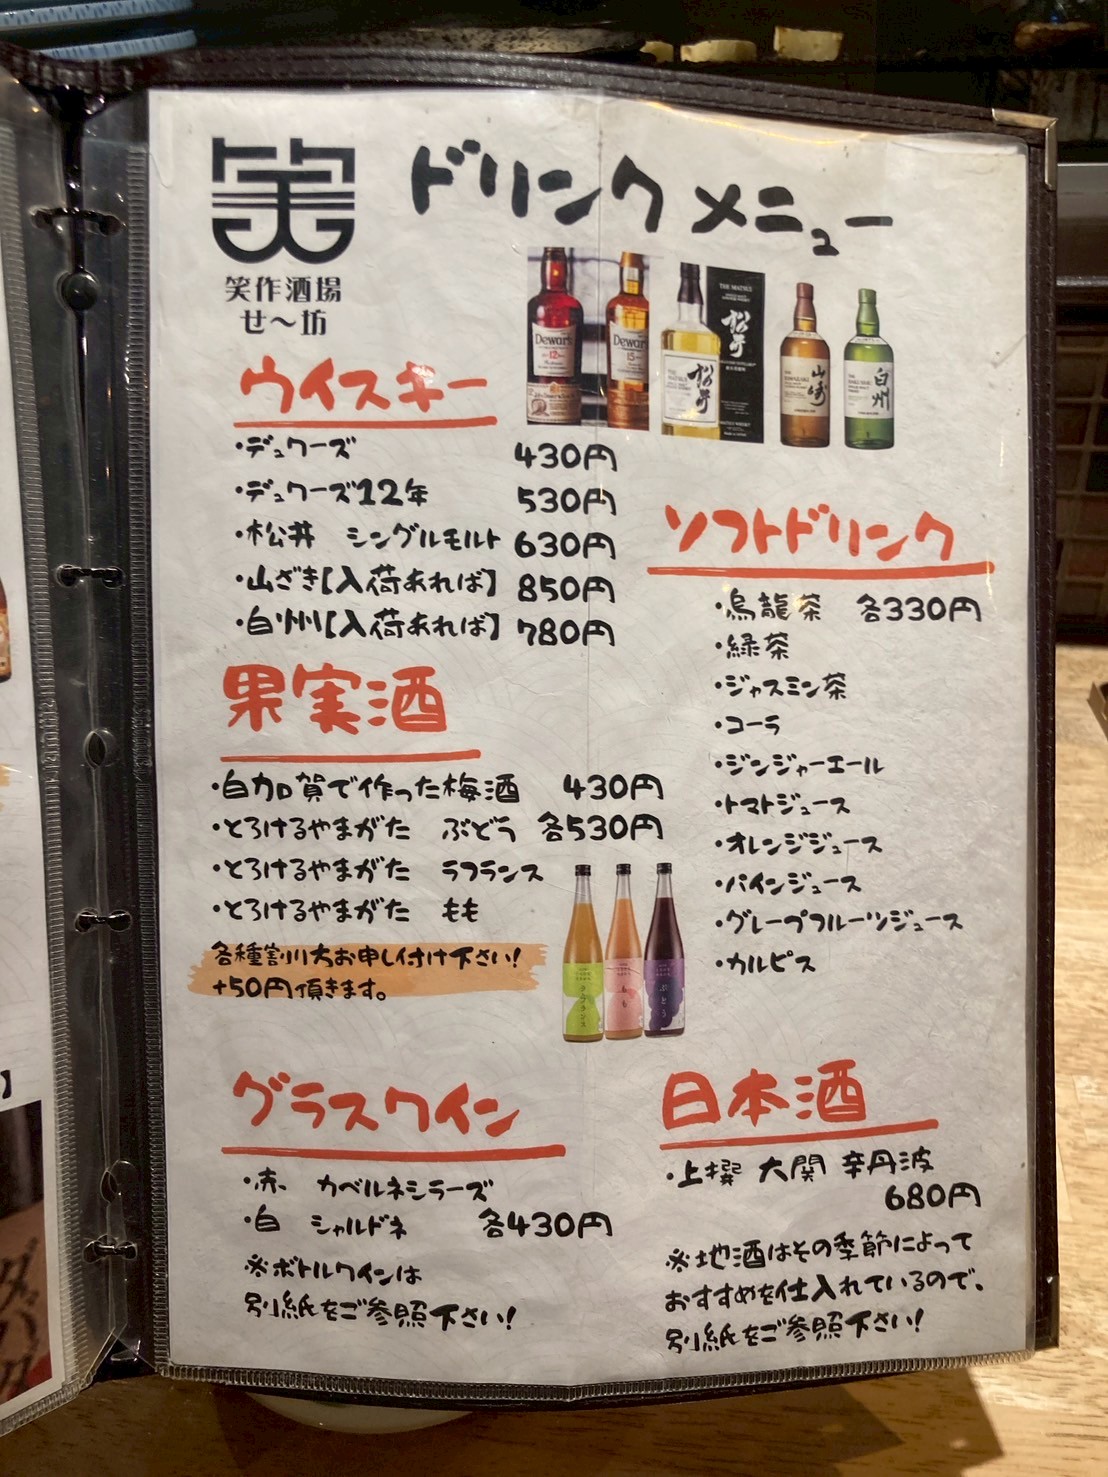 笑
笑作酒場
せ〜坊
ドリンクメニュー
Dewar's
12
Dewar's
15
THE MATSUI
松井
松井
山崎
白州
ウイスキー
・デュワーズ 430円
・デュワーズ12年 530円
・松井 シングルモルト 630円
・山ざき【入荷あれば】 850円
・白州【入荷あれば】 780円
果実酒
・白加賀で作った梅酒 430円
・とろけるやまがた ぶどう 各530円
・とろけるやまがた ラフランス
・とろけるやまがた もも
各種割り方お申し付け下さい!
+50円頂きます。
ラフランス
もも
ぶどう
ソフトドリンク
・烏龍茶 各330円
・緑茶
・ジャスミン茶
・コーラ
・ジンジャーエール
・トマトジュース
・オレンジジュース
・パインジュース
・グレープフルーツジュース
・カルピス
グラスワイン
・赤 カベルネシラーズ
・白 シャルドネ 各430円
※ボトルワインは
別紙をご参照下さい!
日本酒
・上撰 大関 辛丹波
680円
※地酒はその季節によって
おすすめを仕入れているので、
別紙をご参照下さい!
】